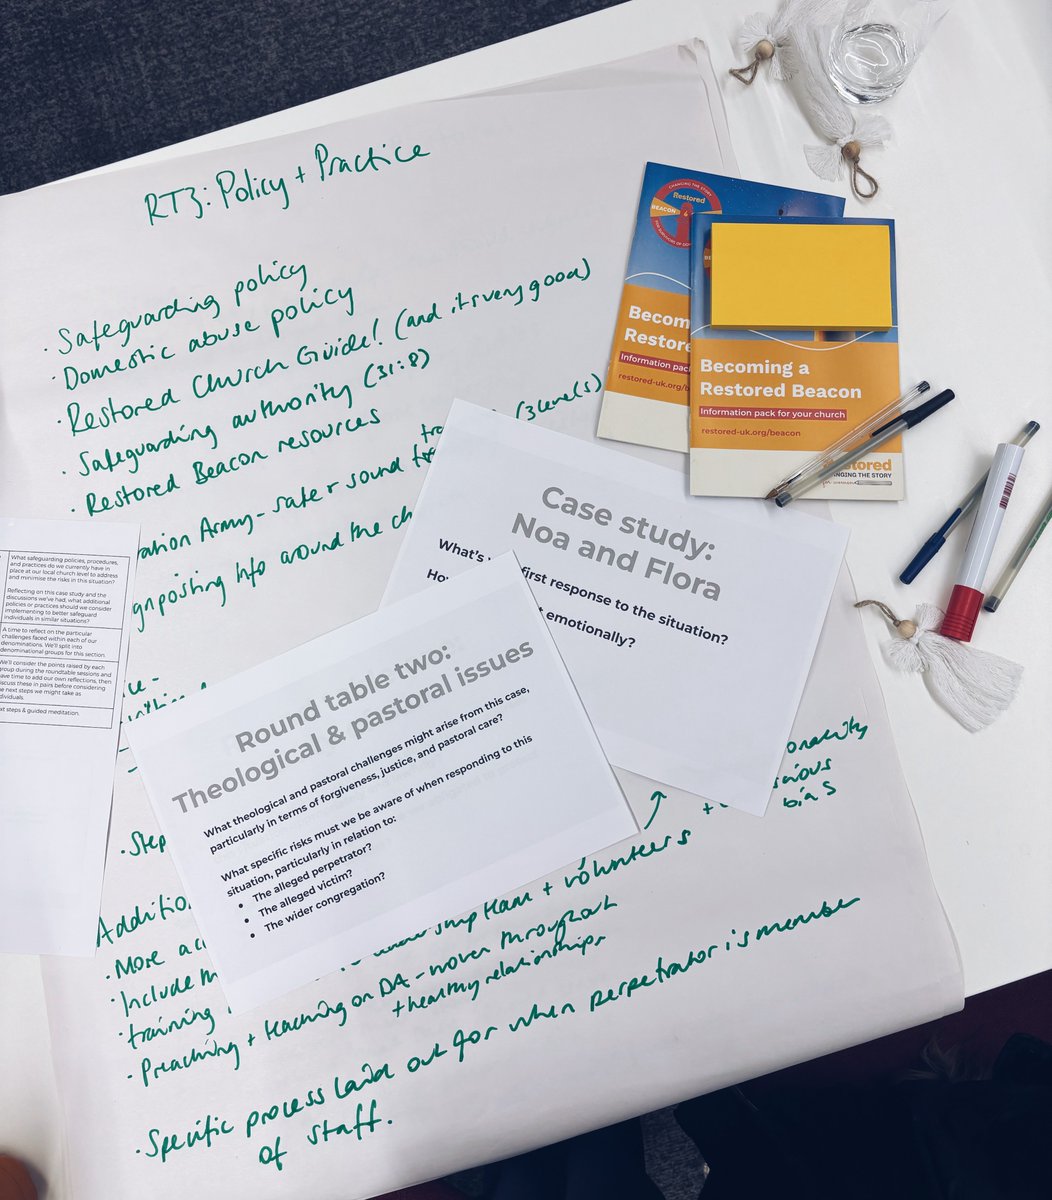 RT3: Policy + Practice
· Safeguarding policy
· Domestic abuse policy
· Restored Church Guide! (and its very good)
· Safeguarding authority (31:8)
· Restored Beacon resources
(3 levels)
Army - safe + sound
info around the
· Step
Additio
· More
· Include
· training
team + volunteers +
bias
· Preaching + teaching on DA - woven throughout
+ healthy relationships
· Specific process laid out for when perpetrator is member
of staff.
What safeguarding policies, procedures,
and practices do we currently have in
place at our local church level to address
and minimise the risks in this situation?
Reflecting on this case study and the
discussions we've had, what additional
policies or practices should we consider
implementing to better safeguard
individuals in similar situations?
A time to reflect on the particular
challenges faced within each of our
denominations. We'll split into
denominational groups for this section.
We'll consider the points raised by each
group during the roundtable sessions and
have time to add our own reflections, then
discuss these in pairs before considering
the next steps we might take as
individuals.
steps & guided meditation.
Round table two:
Theological & pastoral issues
What theological and pastoral challenges might arise from this case,
particularly in terms of forgiveness, justice, and pastoral care?
What specific risks must we be aware of when responding to this
situation, particularly in relation to:
• The alleged perpetrator?
• The alleged victim?
• The wider congregation?
Case study:
Noa and Flora
What's first response to the situation?
emotionally?
CHANGING THE STORY
Restored
BEACON
Becom
Restore
Information pack
restored-uk.org/b
Becoming a
Restored Beacon
Information pack for your church
restored-uk.org/beacon
stored
CHANGING THE STORY